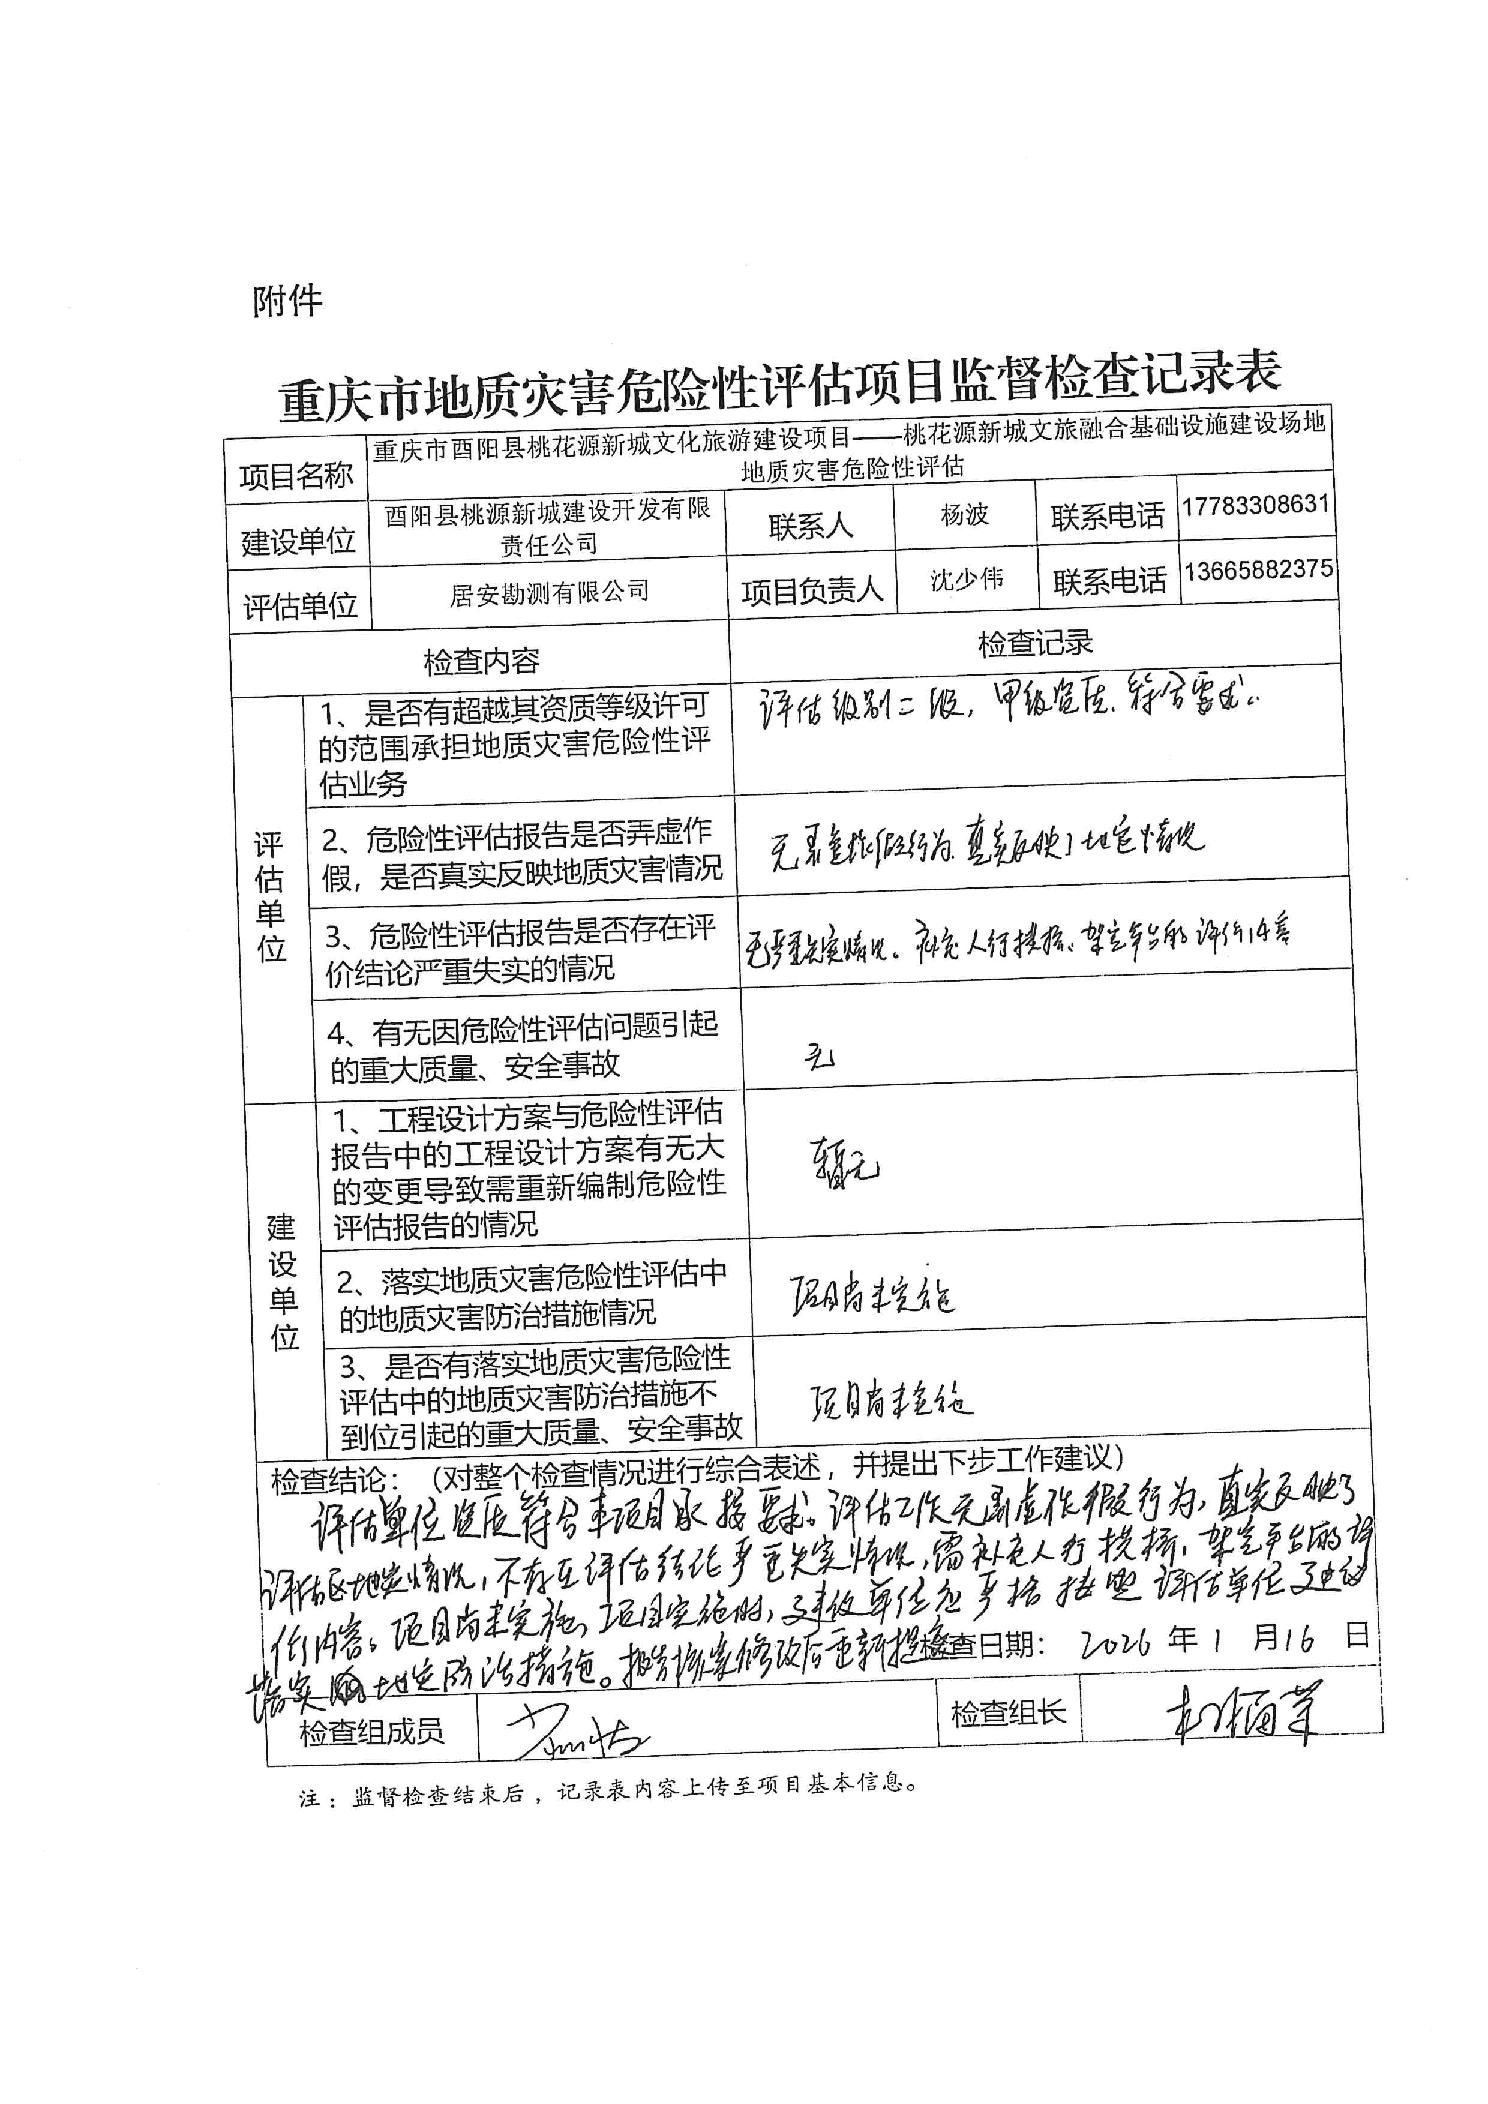 附件
重庆市地质灾害危险性评估项目监督检查记录表
项目名称
重庆市酉阳县桃花源新城文化旅游建设项目——桃花源新城文旅融合基础设施建设场地
地质灾害危险性评估
建设单位
酉阳县桃源新城建设开发有限
责任公司
联系人
杨波
联系电话
17783308631
评估单位
居安勘测有限公司
项目负责人
沈少伟
联系电话
13665882375
检查内容
检查记录
评估单位
1、是否有超越其资质等级许可
的范围承担地质灾害危险性评
估业务
评估级别二级，甲级资质，符合要求。
2、危险性评估报告是否弄虚作
假，是否真实反映地质灾害情况
无弄虚作假行为，真实反映了地灾情况
3、危险性评估报告是否存在评
价结论严重失实的情况
无严重失实情况。补充人行拱桥、架空平台的评价内容
4、有无因危险性评估问题引起
的重大质量、安全事故
无
建设单位
1、工程设计方案与危险性评估
报告中的工程设计方案有无大
的变更导致需重新编制危险性
评估报告的情况
暂无
2、落实地质灾害危险性评估中
的地质灾害防治措施情况
项目尚未实施
3、是否有落实地质灾害危险性
评估中的地质灾害防治措施不
到位引起的重大质量、安全事故
项目尚未实施
检查结论：（对整个检查情况进行综合表述，并提出下步工作建议）
评估单位资质符合本项目承接要求。评估工作无弄虚作假行为，真实反映了
评估区地灾情况，不存在评估结论严重失实情况，需补充人行拱桥、架空平台的评
价内容。项目尚未实施，项目实施时，建设单位应严格按照评估单位建议
落实地灾防治措施。报告修改后重新提交
检查日期：2026年1月16日
检查组成员
检查组长
注：监督检查结束后，记录表内容上传至项目基本信息。